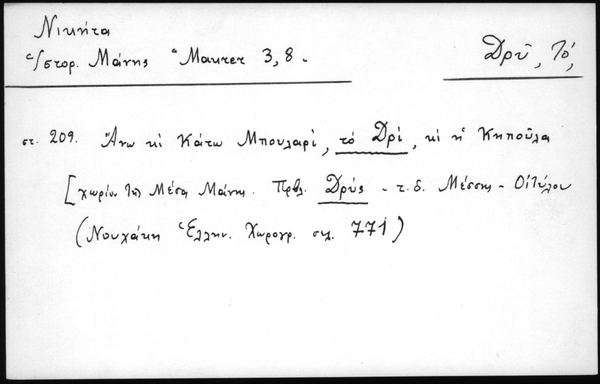 Νικήτα
Ἱστορ. Μάνης "Maurer 3, 8.
Δρῦ, Τό,
στ. 209. Ἄνω κὶ Κάτω Μπουλαρὶ, τὸ Δρὶ, κὶ ἡ Κηπούλα
[χωρίον τῆς Μέσα Μάνης. Πρβλ. Δρύς - τ. δ. Μέσσης - Οἰτύλου
(Νουχάκη Ἑλλην. Χωρογρ. σελ. 771)